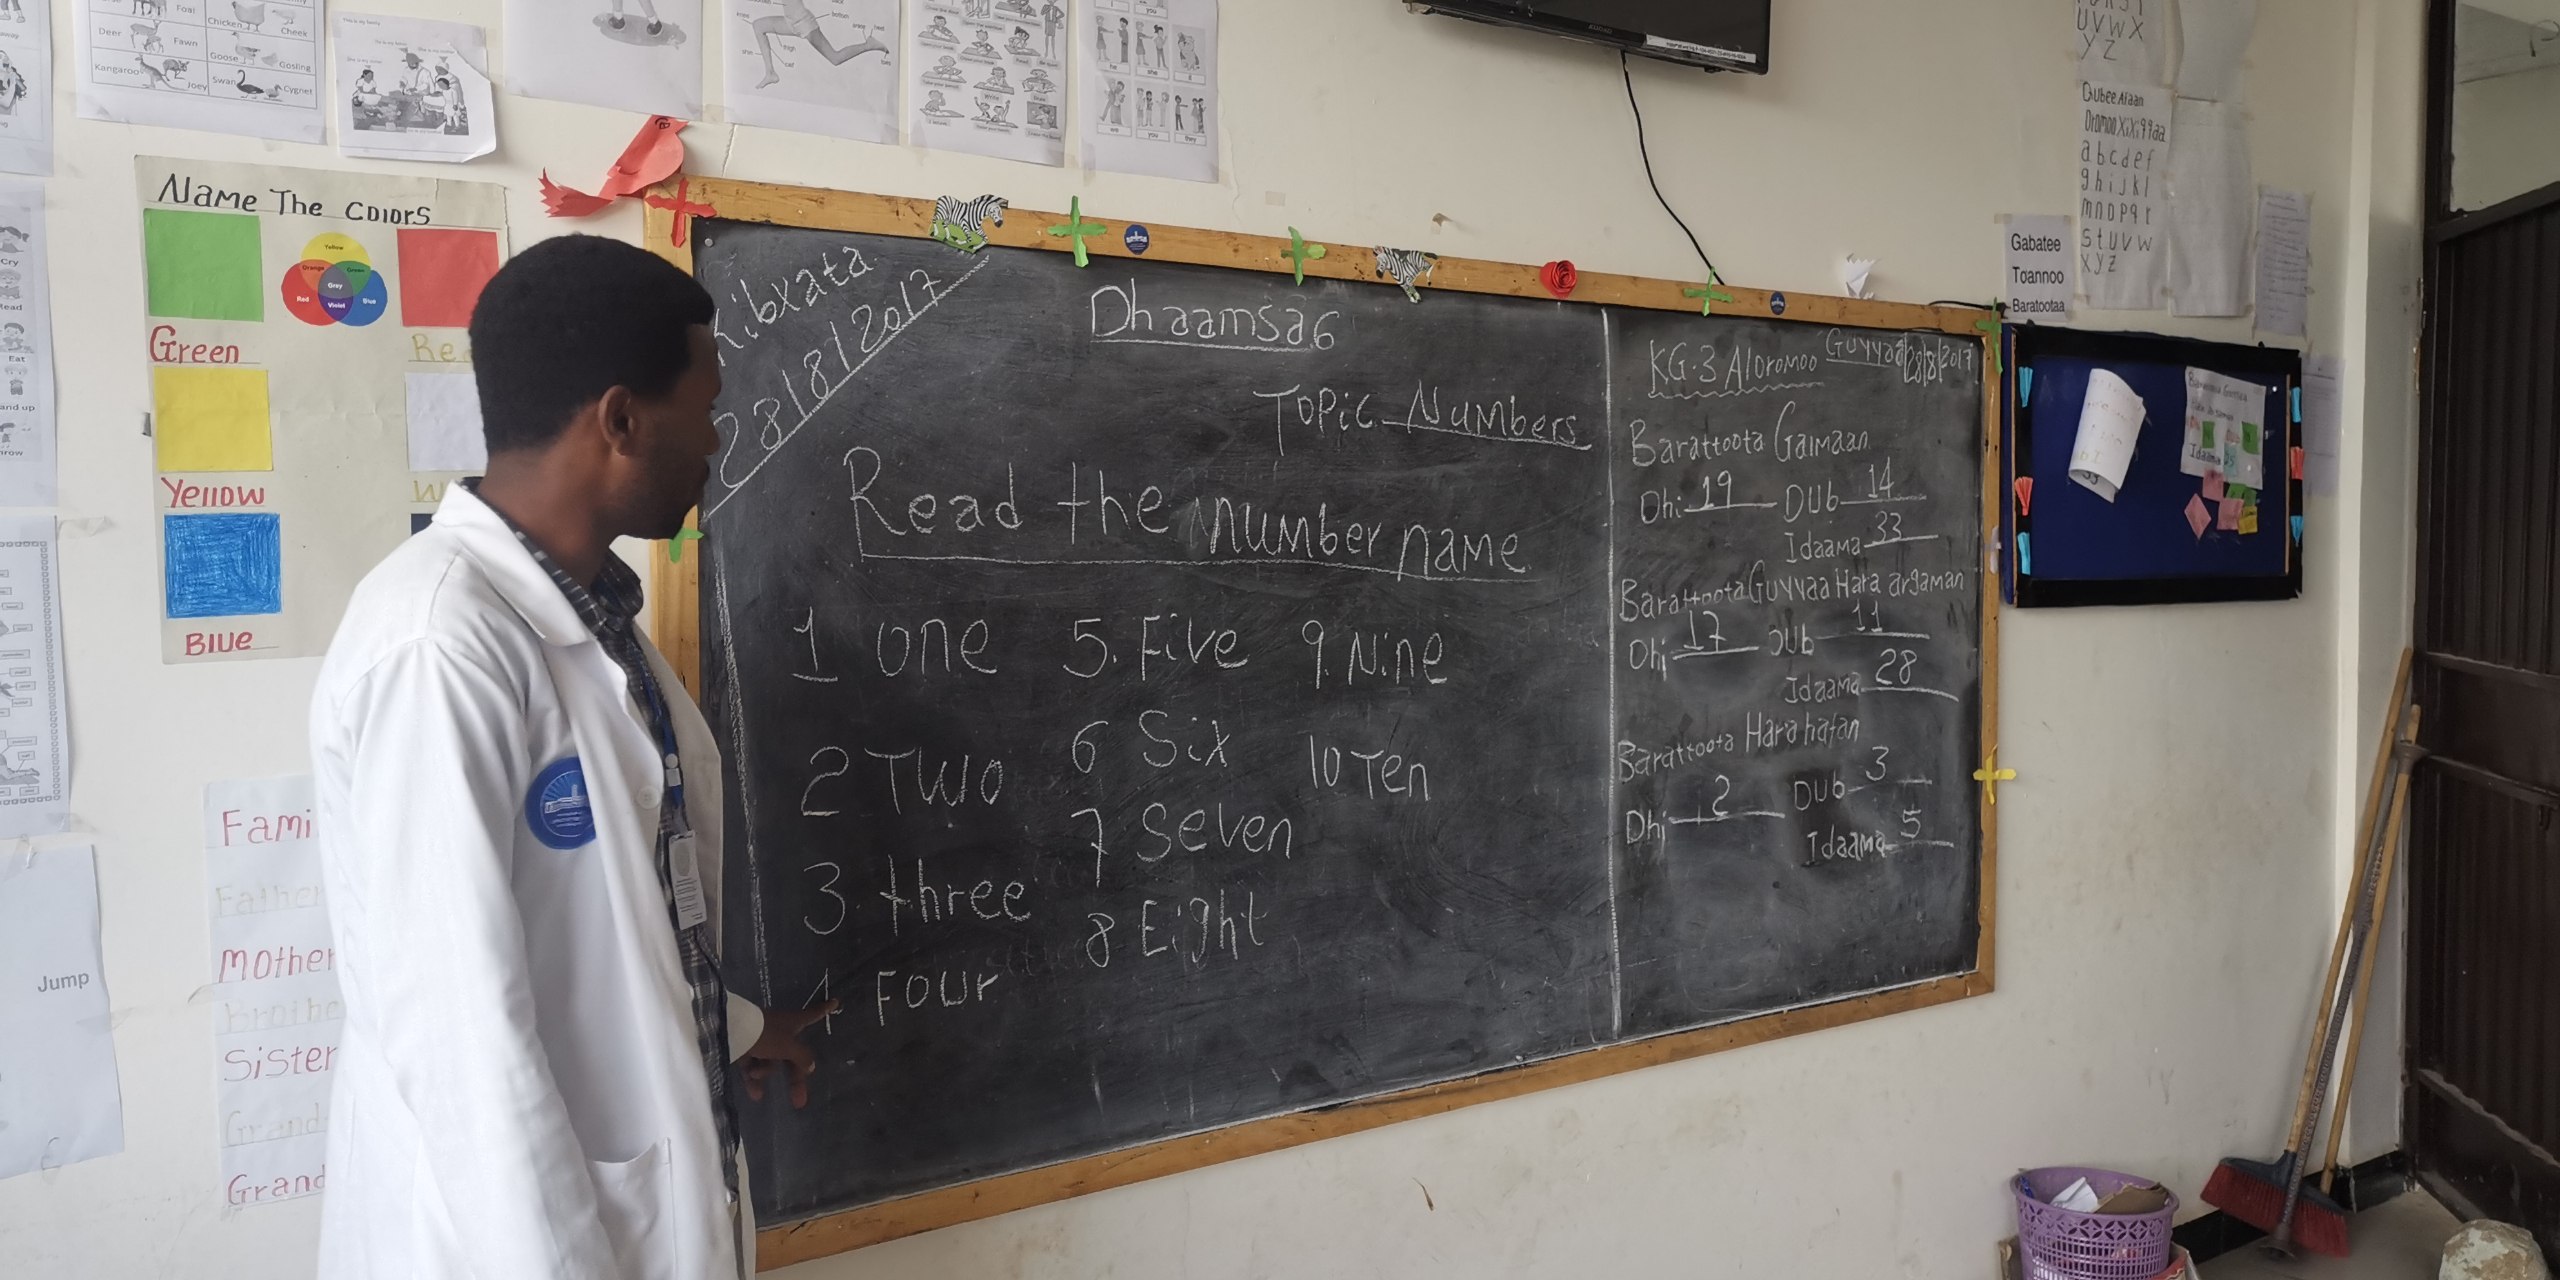 Foal
Chicken
Cheek
Deer
Fawn
Goose
Gosling
Kangaroo
Joey
Swan
Cygnet
he
she
it
we
you
they
Name The Colors
Yellow
Orange
Green
Grey
Red
Violet
Blue
Green
Yellow
Blue
Cry
Eat
Jump
Mother
Sister
Kibxata
28/8/2017
Dhaamsa 6
Topic Numbers
Read the number name
1 one 5. Five 9. Nine
2 Two 6 Six 10 Ten
3. three 7 Seven
4 Four 8 Eight
KG.3 A/oromoo Guyyaa 28/8/2017
Barattoota Galmaan
Dhi 19 Dub 14
Idaama 33
Barattoota Guyyaa Hara argaman
Dhi 17 Dub 11
Idaama 28
Barattoota Hara hafan
Dhi 2 Dub 3
Idaama 5
UVWX
YZ
Qubee Afaan
Oromoo Xixiqqaa
abcdef
ghijkl
mnopqr
stuvw
xyz
Gabatee
Toannoo
Baratootaa